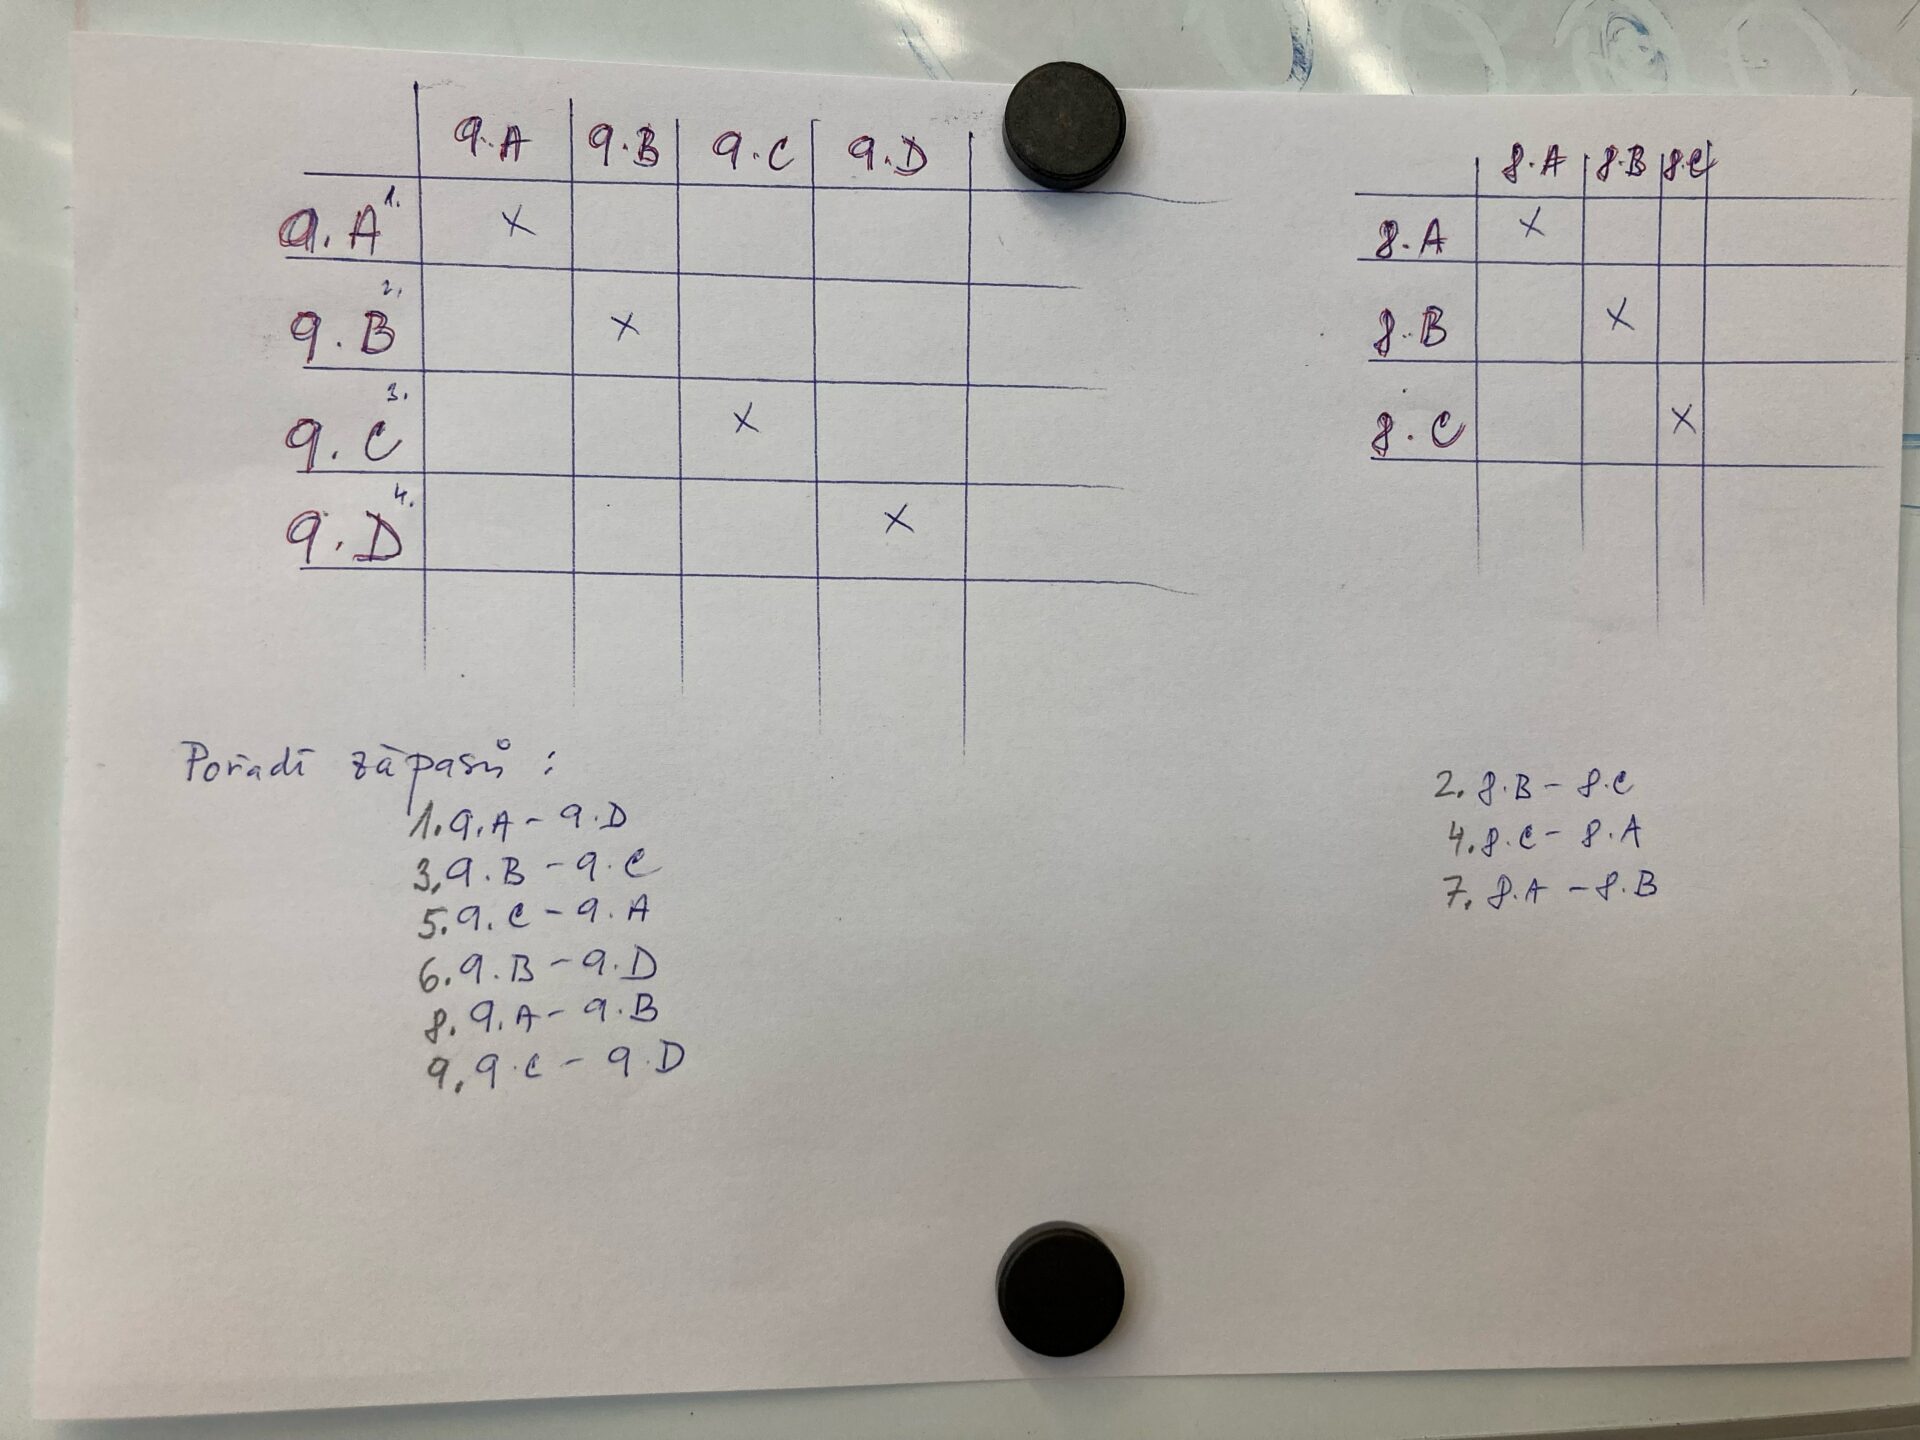 9.A 9.B 9.C 9.D
9.A 1. X
9.B 2. X
9.C 3. X
9.D 4. X
8.A 8.B 8.C
8.A X
8.B X
8.C X
Pořadí zápasů :
1. 9.A - 9.D
3. 9.B - 9.C
5. 9.C - 9.A
6. 9.B - 9.D
8. 9.A - 9.B
9. 9.C - 9.D
2. 8.B - 8.C
4. 8.C - 8.A
7. 8.A - 8.B